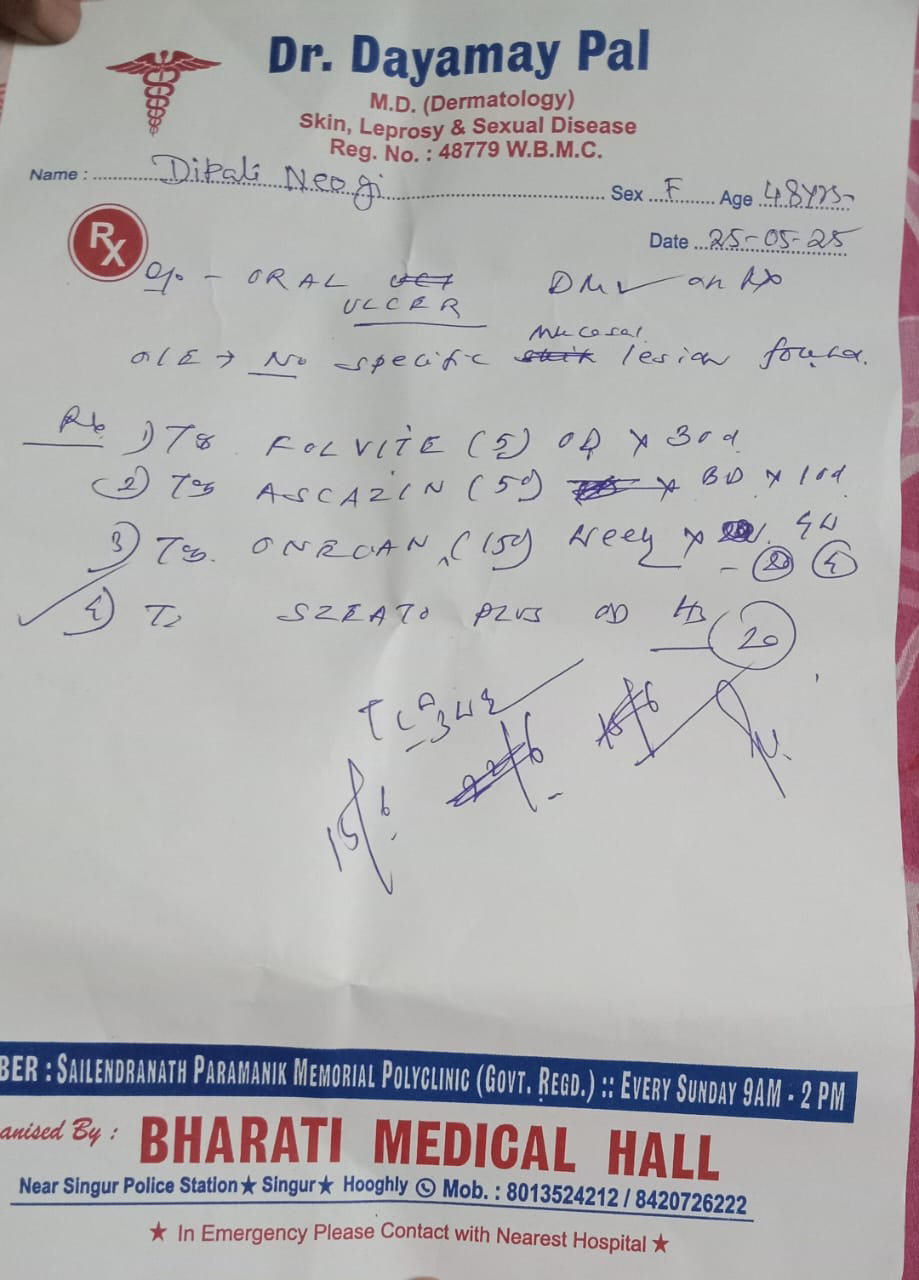 Dr. Dayamay Pal
M.D. (Dermatology)
Skin, Leprosy & Sexual Disease
Reg. No. : 48779 W.B.M.C.
Name : Dipali Neogi Sex F Age 48Yrs
Rx
Date 25-05-25
ORAL DM on Rx
ULCER
Mucosal
O/E → No specific lesion found.
1) Tb FOLVITE (5) OD x 30d
(2) Tb ASCAZIN (50) x BD x 10d
3) Tb. ONECAN (150)
4) PLUS OD 20
15/6
BER : SAILENDRANATH PARAMANIK MEMORIAL POLYCLINIC (GOVT. REGD.) :: EVERY SUNDAY 9AM - 2 PM
anised By : BHARATI MEDICAL HALL
Near Singur Police Station★ Singur★ Hooghly Mob. : 8013524212 / 8420726222
★ In Emergency Please Contact with Nearest Hospital ★